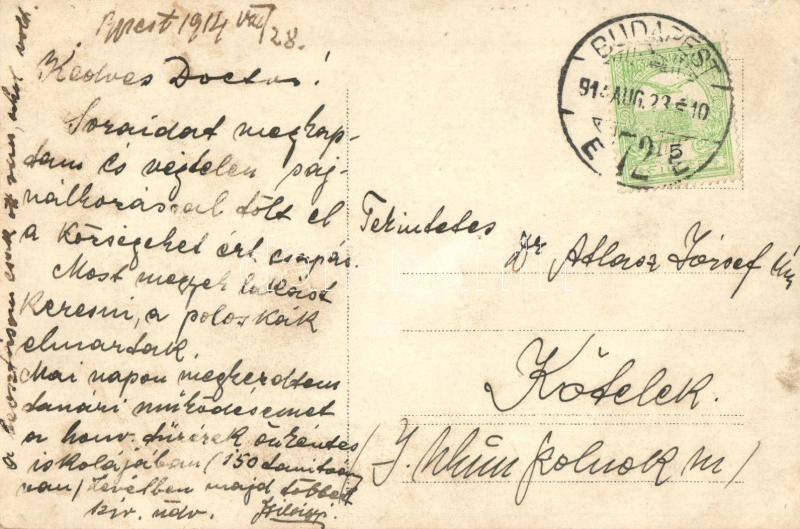 Bpest 1914 VIII/28.
Kedves Doctor!
Soraidat megkap-
tam és végtelen saj-
nálkozással tölt el
a községeket ért csapás.
Most megyek lakást
keresni, a poloskák
elmartak.
Mai napon megkezdtem
tanári működésemet
a honv. tüzérek önkéntes
iskolájában (150 tanítvány
van) Levélben majd többet
szív. üdv.
a beosztásom csak itt van, ahol volt
BUDAPEST
914 AUG. 28
72
5
Tekintetes
Dr Atlasz József úr
Kőtelek.
(J. N kun Szolnok m)